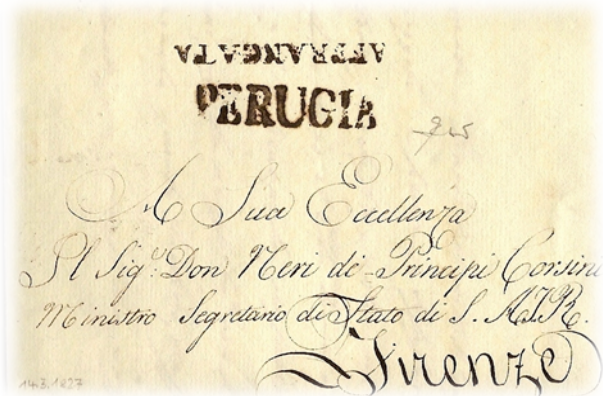 AFFRANCATA
PERUGIA
A Sua Eccellenza
Il Sigr. Don Neri de Principi Corsini
Ministro Segretario di Stato di S. A. I. R.
Firenze
14.3.1827